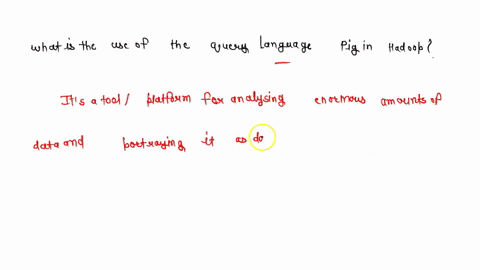 what is the use of the query language Pig in Hadoop?
It's a tool/ platform for analysing enormous amounts of
data and portraying it as do